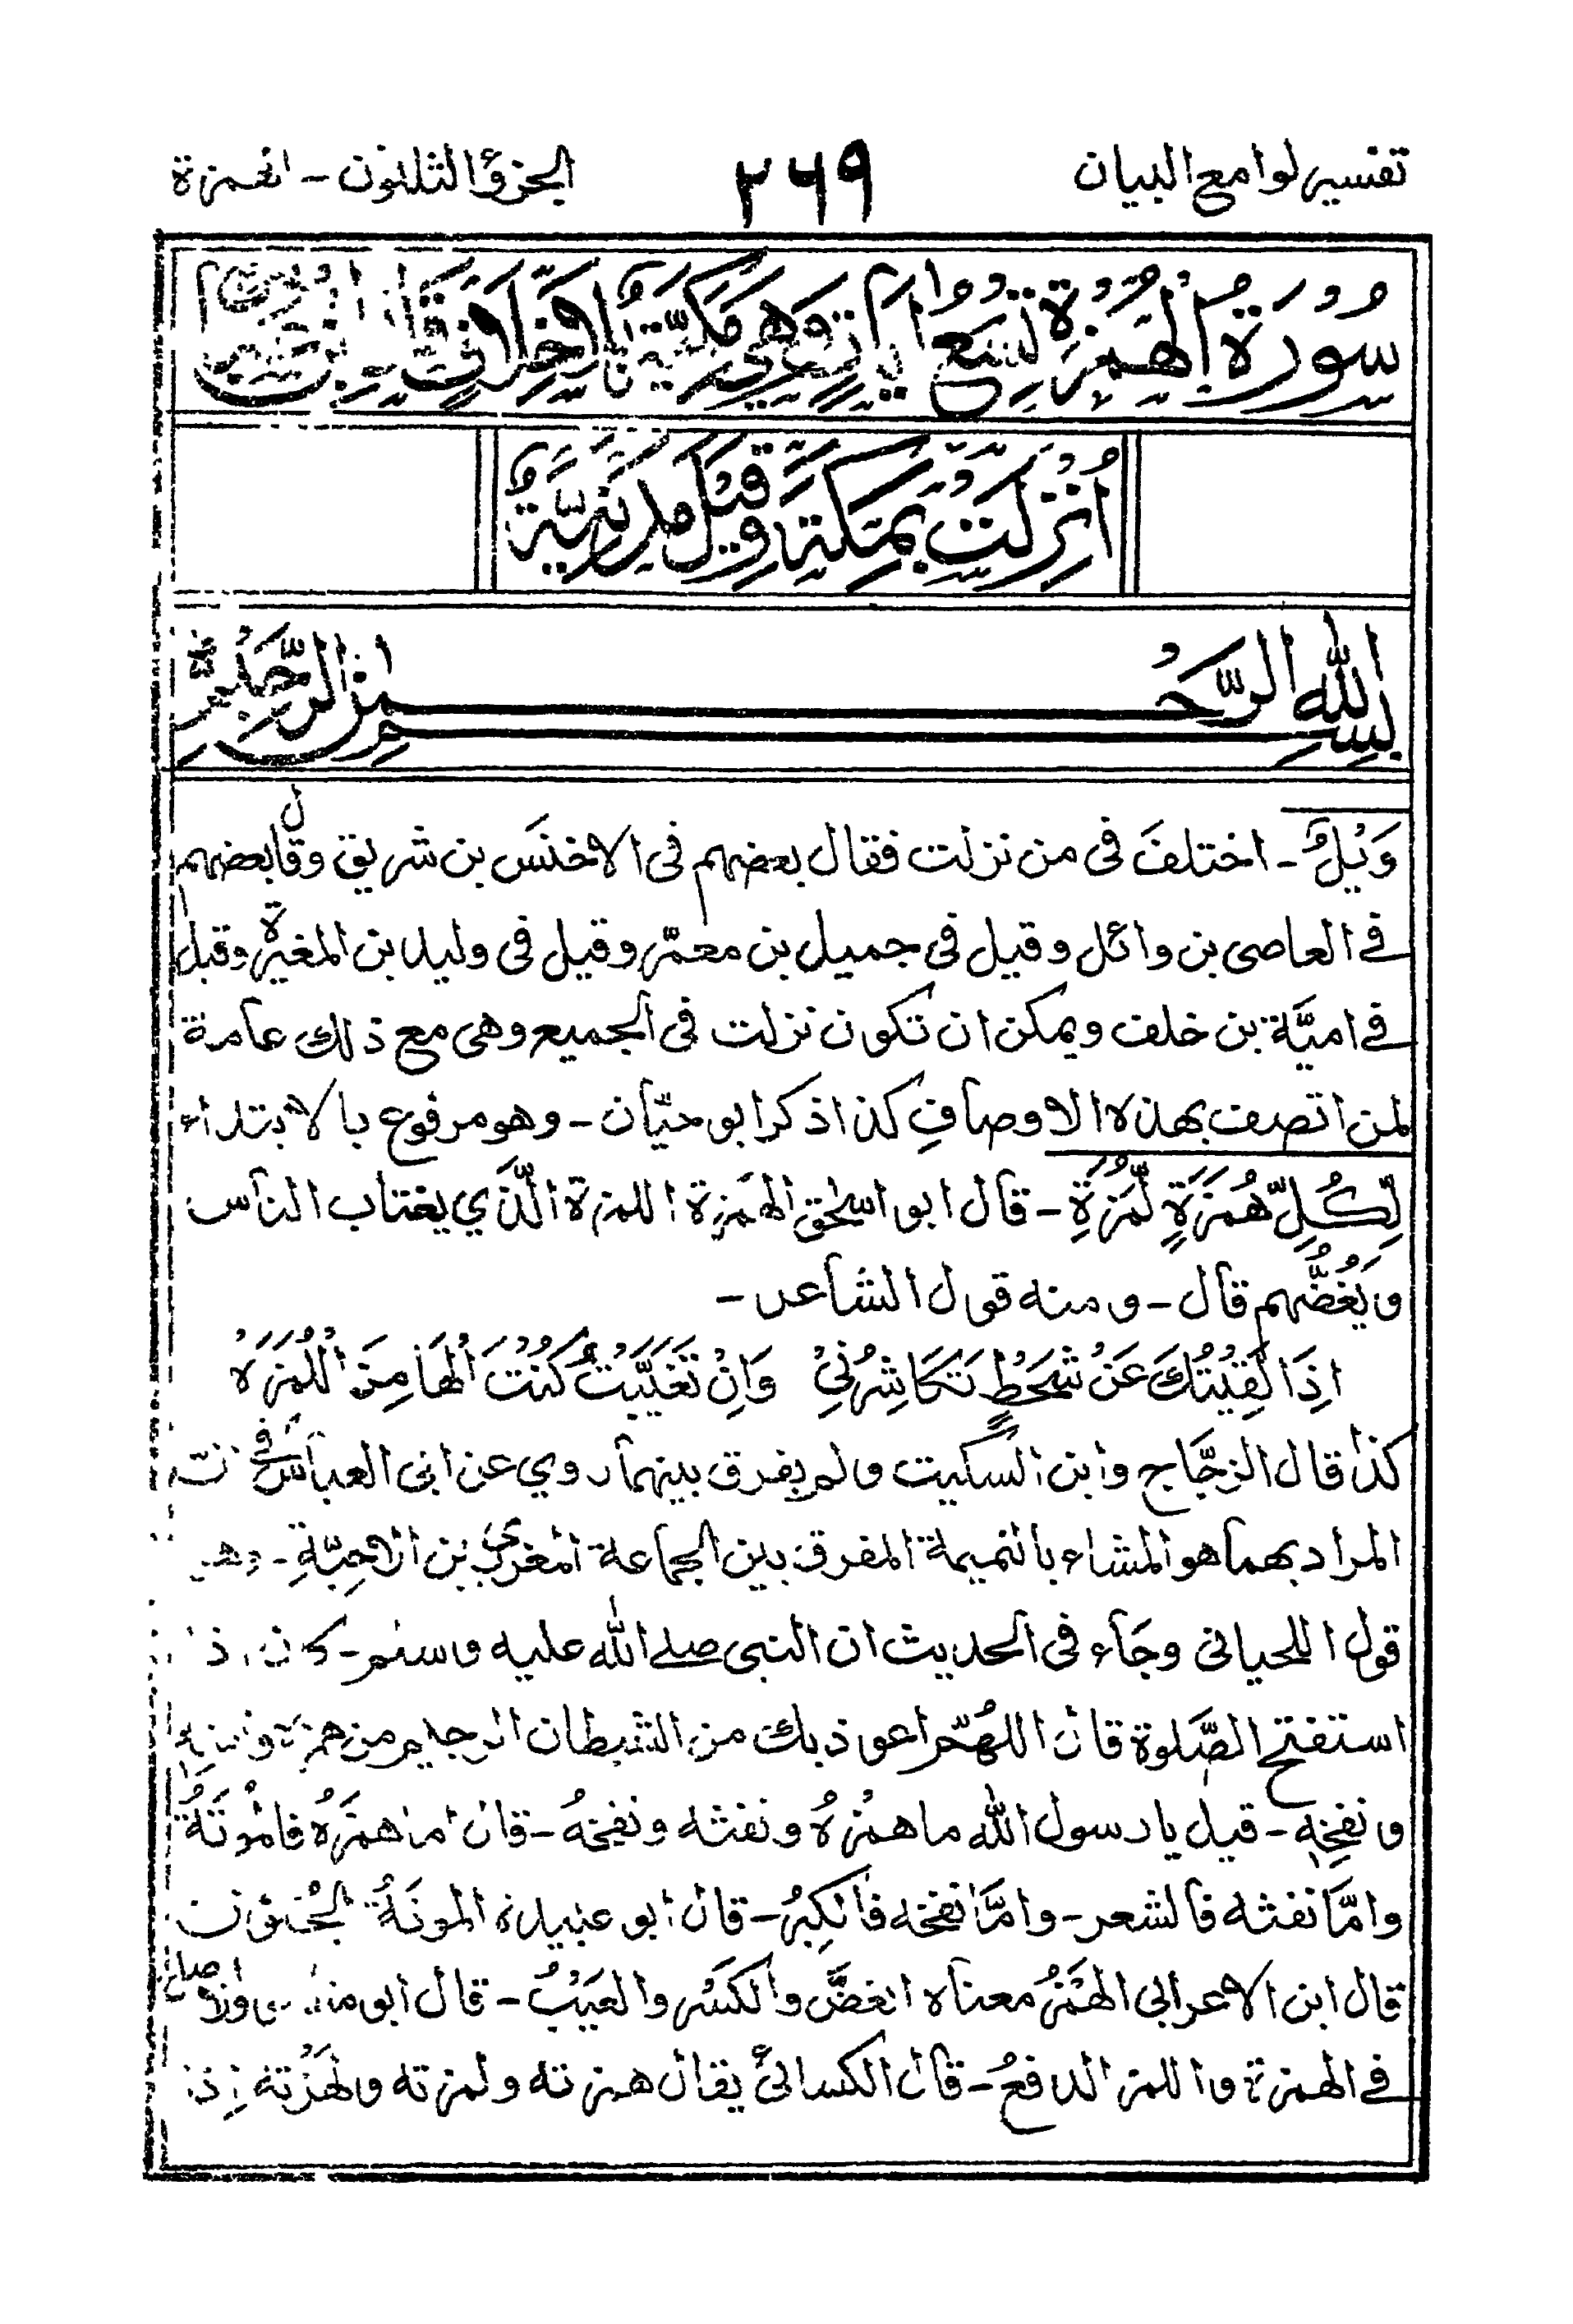 تفسير لوامع البيان ٢٦٩ الجزؤ الثلثون - الهمزة
سُورَةُ الْهُمَزَةِ تِسْعُ اٰيَاتٍ وَهِيَ مَكِّيَّةٌ بِلَا خِلَافٍ
اُنْزِلَتْ بِمَكَّةَ وَقِيْلَ مَدَنِيَّةٌ
بِسْمِ اللهِ الرَّحْمٰنِ الرَّحِيْمِ
وَيْلٌ - اختلفَ فى من نزلت فقال بعضهم فى الاخنَس بن شريق وقال بعضهم
فے العاصى بن وائل وقيل فى جميل بن معمّر وقيل فى وليد بن المغيرة وقيل
فے اميَّة بن خلف ويمكن ان تكون نزلت فى الجميع وهى مع ذلك عامة
لمن اتصف بهذه الاوصافِ كذا ذكر ابو حيّان - وهو مرفوع بالابتداء
لِّكُلِّ هُمَزَةٍ لُّمَزَةِ - قال ابو اسحٰق الهُمَزة اللمزة الَّذي يغتاب الناس
وَيَغُضُّهم قال - ومنه قول الشاعر -
اِذَا لَقِيْتُكَ عَنْ شَحْطٍ تَكَاشِرُنِيْ وَاِنْ تَغَيَّبْتُ كُنْتَ الْهَامِزَ اللُّمَزَهْ
كذا قال الزجّاج وابن السكيت ولم يفرق بينهما روي عن ابى العباس فى انّ
المراد بهما هو المشاء بالنميمة المفرق بين الجماعة المغري بين الاحِبّةِ -
قول اللحيانى وجَاء فى الحديث ان النبى صلے الله عليه وسلم - كان اذا
استفتح الصَّلوة قال اللهُمّ اعوذ بك من الشيطان الرجيم من همزه ونفثه
ونفخِهٖ - قيل يا رسول الله ما همْزهُ ونفثه ونفخهُ - قال اما همَزهُ فالْمُوتَةُ
وامَّا نفثه فالشعر - وامَّا نفخه فالكِبرُ - قال ابو عبيدة الموتَةُ الجُنون
قال ابن الاعرابى الهَمْزُ معناه الغضّ والكَسْر والعَيْبُ - قال ابو والاصل
فے الهمزة واللمز الدفعُ - قال الكسائىُّ يقال همزته ولمزته ولهَزْته اِذا